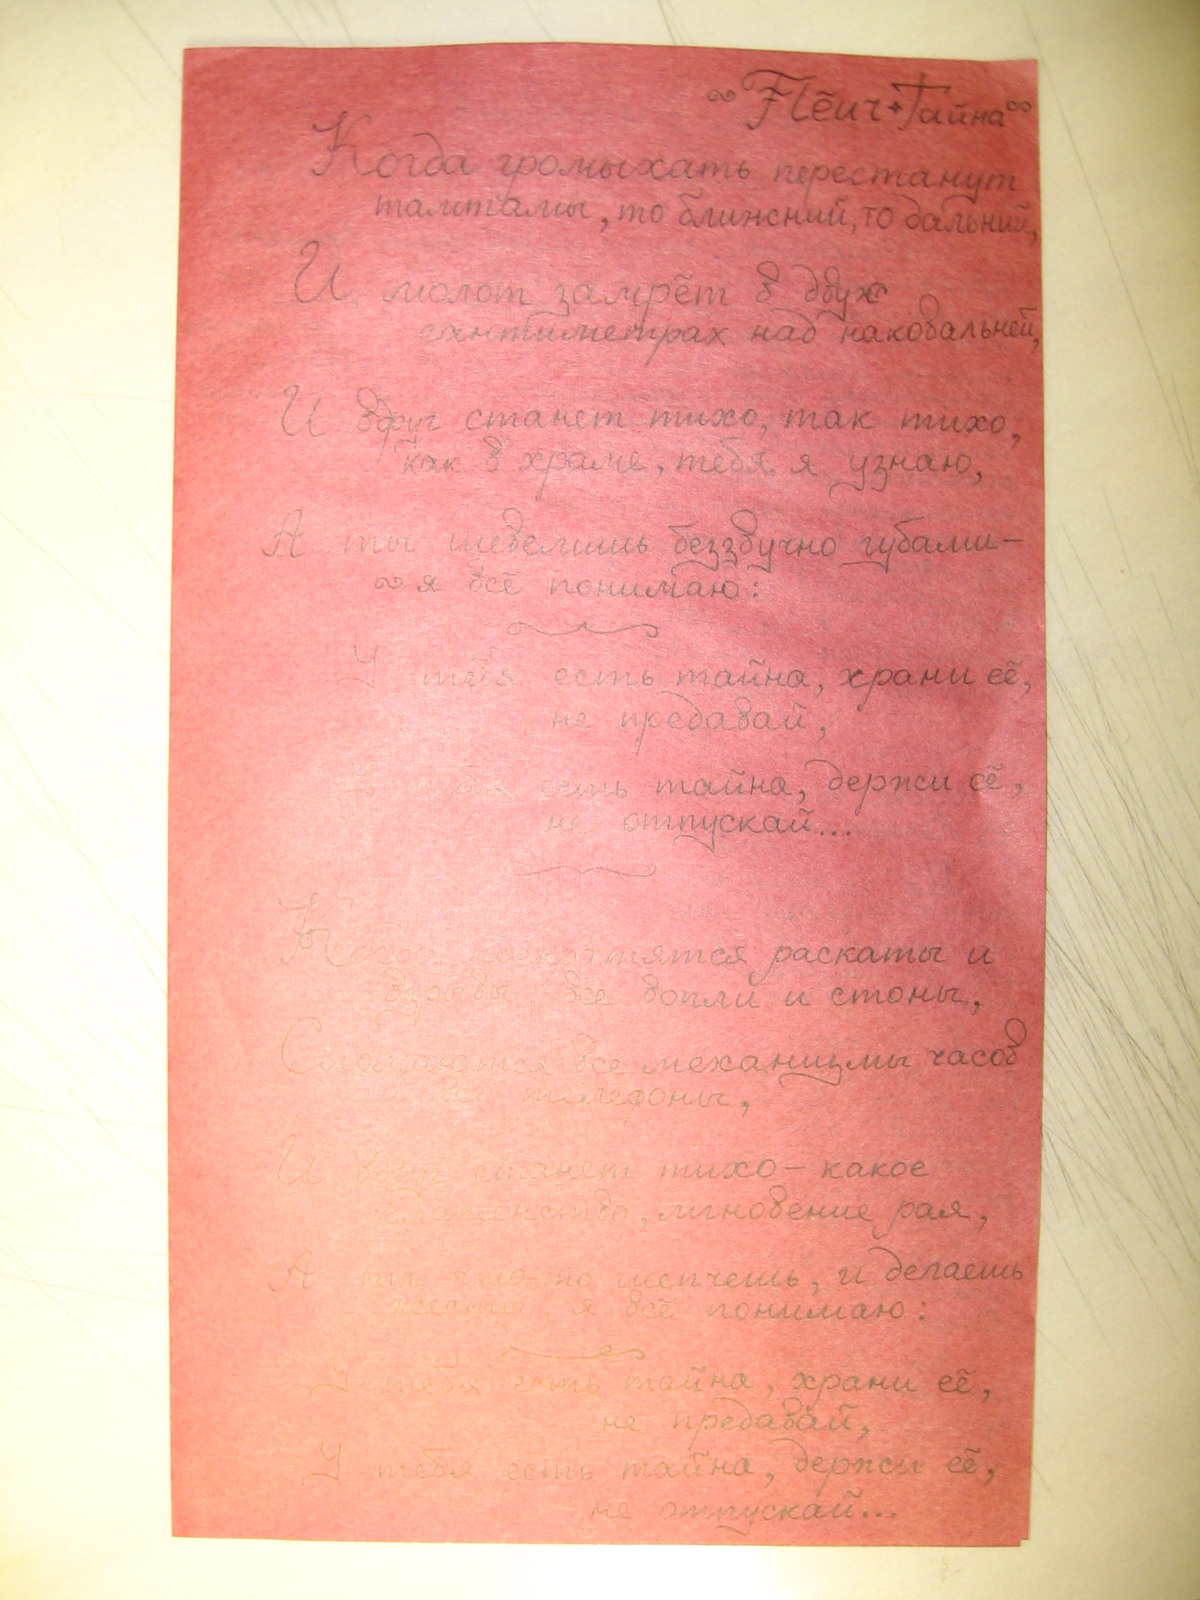 Flёur ✦ Тайна
Когда громыхать перестанут
тамтамы, то ближний, то дальний,
И молот замрёт в двух
сантиметрах над наковальней,
И вдруг станет тихо, так тихо,
как в храме, тебя я узнаю,
А ты шевелишь беззвучно губами –
я всё понимаю:
У тебя есть тайна, храни её,
не предавай,
У тебя есть тайна, держи её,
не отпускай...
Когда прекратятся раскаты и
взрывы, все вопли и стоны,
Сломаются все механизмы часов
и все телефоны,
И вдруг станет тихо – какое
блаженство, мгновение рая,
А ты что-то шепчешь, и делаешь
жесты, я всё понимаю:
У тебя есть тайна, храни её,
не предавай,
У тебя есть тайна, держи её,
не отпускай...